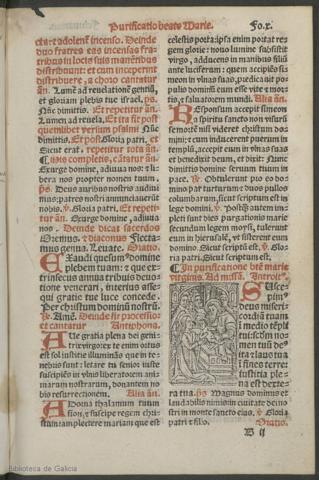 Purificatio beate Marie. Fo.x.
cta: et adolent incenso. Deinde
duo fratres eas incensas fra
tribus in locis suis manẽtibus
distribunt: et cum inceperint
distribuere, a choro cantatur
añ. Lumẽ ad revelationẽ gentiũ,
et gloriam plebis tue israel, ps.
Nũc dimittis. Et repetitur añ.
Lumen ad revela. Et ita fit post
quemlibet versum psalmi Nũc
dimittis. Et post Gloria patri, et
Sicut erat. repetitur tota añ.
Quibus completis, cãtatur añ.
Exurge domine, adiuva nos: et li
bera nos propter nomen tuum,
ps. Deus auribus nostris audivi
mus: patres nostri annunciaverũt
nobis. Gloria patri. Et repetitur
añ. Exurge domine, adiuva
nos. Deinde dicat sacerdos
Oremus. et diaconus Flecta
mus genua. Levate. Oratio.
EXaudi quesumus domine
plebem tuam: et que ex
trinsecus annua tribuis devo
tione venerari, interius asse
qui gratie tue luce concede.
Per christum dominũ nostrũ.
Amẽ. Deinde fit processio:
et cantatur Antiphona.
AVe gratia plena dei geni
trix virgo: ex te enim ortus
est sol iustitie illuminãs que in te
nebris sunt: letare tu senior iuste
suscipiẽs in ulnis liberatorem ani
marum nostrarum, donantem no
bis resurrectionem. Alia añ.
ADorna thalamum tuum
sion, et suscipe regem chri
stum: amplectere mariam que est
celestis porta: ipsa enim portat re
gem glorie: novo lumine subsistit
virgo, adducens in manibus filiũ
ante luciferum: quem accipiẽs si
meon in ulnas suas, predicavit po
pulis dominũ eum esse vite et mor
tis, et salvatorem mundi. Alia añ.
REsponsum accepit simeon
a spiritu sancto non visurũ
se mortẽ nisi videret christum do
mini: et cum inducerent puerum in
templũ, accepit eum in ulnas suas
et benedixit deum, et dixit: Nunc
dimittis domine servum tuum in
pace. Obtulerunt pro eo do
mino par turturum et duos pullos
columbarum, sicut scriptum est in
lege domini. Postq̃ autem im
pleti sunt dies purgationis marie
secundum legem moysi, tulerunt
eum in hierusalẽ, ut sisterent eum
domino. Sicut scriptũ est. Glo
ria patri. Sicut scriptum est,
In purificatione btẽ marie
virginis. Ad missã. Introit.
SUsce
pim⁹
deus miseri
cordiã tuam
in medio tẽpli
tui: scd̃m nos
men tuũ deus
ita et laus tua
in fines terre:
iustitia ple
na est dexte
ra tua. ps. Magnus dominus et
laudabilis nimis: in civitate dei no
stri in monte sancto eius. Gloria
patri et filio. Oratio.
B ij
Biblioteca de Galicia